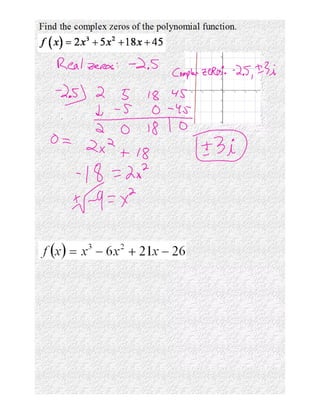 Find the complex zeros of the polynomial function.
f (x) = 2x³ + 5x² + 18x + 45
Real zeros: -2.5
Complex zeros: -2.5, ±3i
-2.5) 2 5 18 45
↓ -5 0 -45
2 0 18 | 0
0 = 2x² + 18
±3i
-18 = 2x²
±√-9 = x²
f(x) = x³ − 6x² + 21x − 26